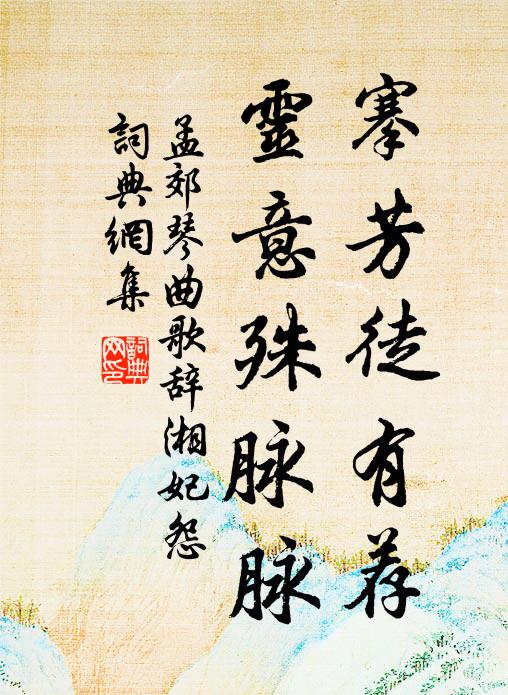 搴芳徒有荐
靈意殊脉脉
孟郊琴曲歌辞湘妃怨
詞典網集
詞典
网印